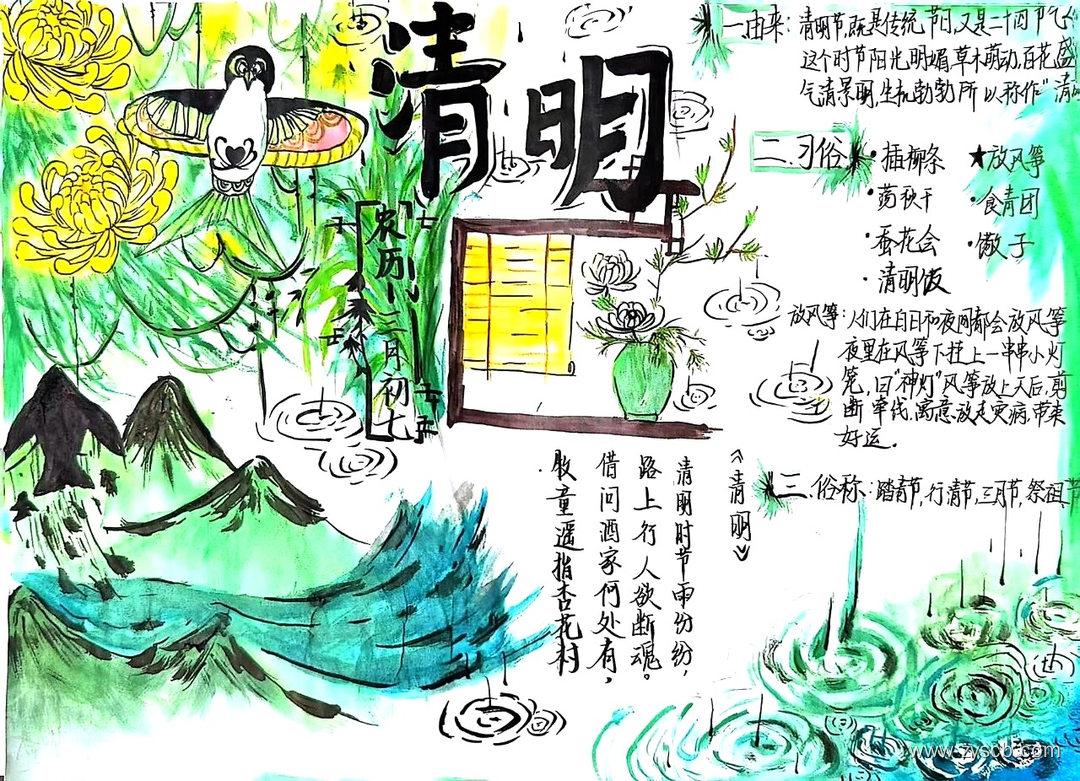 清明
农历二月初七
一.由来:清明节,既是传统节日,又是二十四节气
这个时节阳光明媚草木萌动,百花盛
气清景明,生机勃勃所以称作"清
二.习俗
·插柳条 ★放风筝
·荡秋千 ·食青团
·蚕花会 ·馓子
·清明饭
放风筝:人们在白日和夜间都会放风筝
夜里在风筝下挂上一串串小灯
笼,曰"神灯"风筝放上天后,剪
断牵线,寓意放走灾病,带来
好运。
三.俗称:踏青节,行清节,三月节,祭祖节
《清明》
清明时节雨纷纷,
路上行人欲断魂。
借问酒家何处有,
牧童遥指杏花村
www.zyscb.com